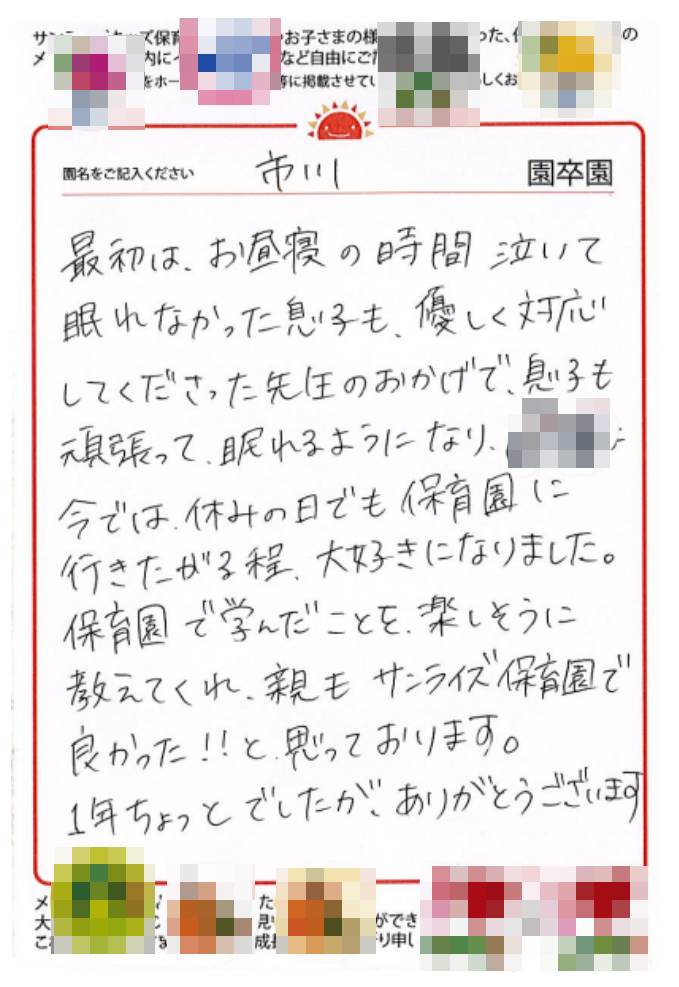 サン キッズ保育 やお子さまの様 った、 の
メ 内に など自由にご
をホー 等に掲載させてい しくお
園名をご記入ください 市川 園卒園
最初は、お昼寝の時間 泣いて
眠れなかった息子も、優しく対応
してくださった先生のおかげで、息子も
頑張って、眠れるようになり、
今では、休みの日でも保育園に
行きたがる程、大好きになりました。
保育園で学んだことを、楽しそうに
教えてくれ、親も サンライズ保育園で
良かった!!と、思っております。
1年ちょっとでしたが、ありがとうございます
メ た
大 見 ができ
こ 成長 り申し